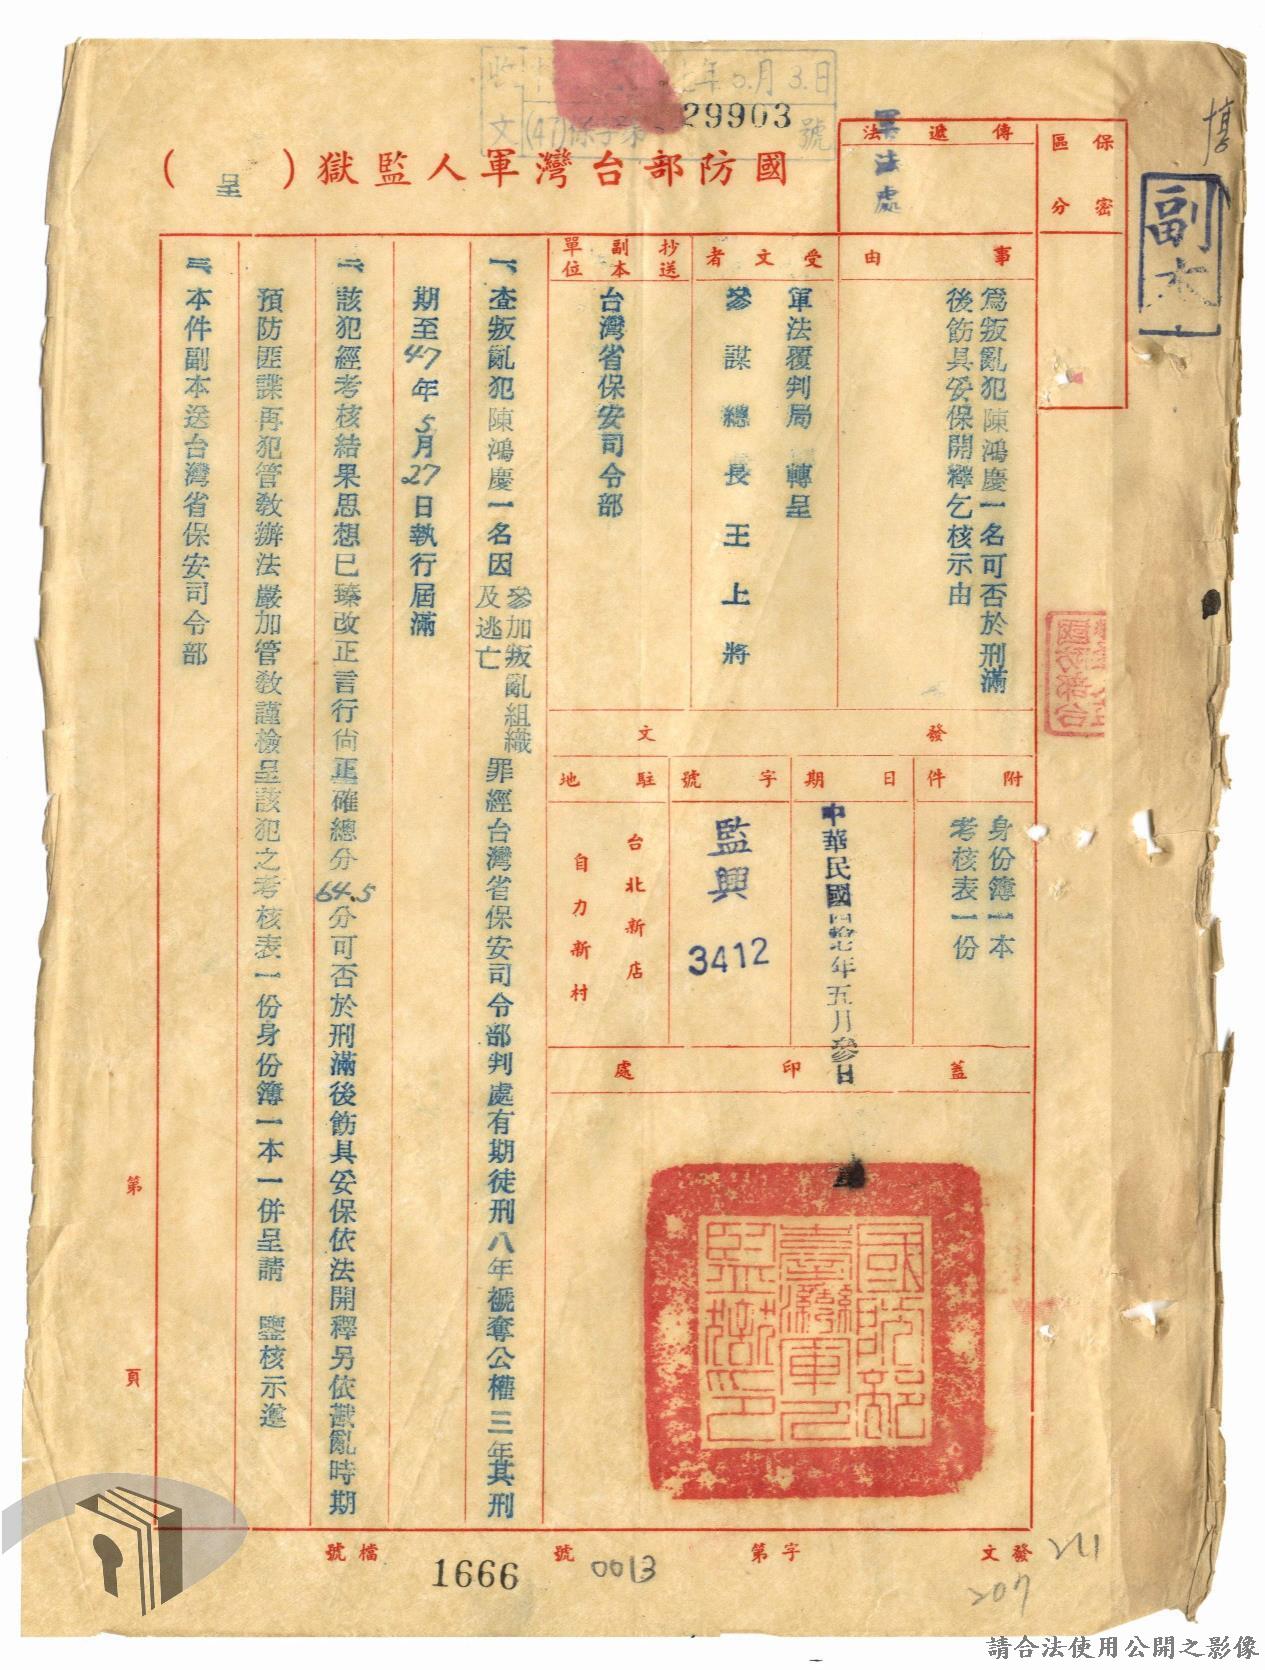 副本
收文
年5月3日
(47)
字第
29903
號
國防部台灣軍人監獄(呈)
傳遞法
軍法處
保密區分
事由
為叛亂犯陳鴻慶一名可否於刑滿
後飭具妥保開釋乞核示由
受文者
軍法覆判局轉呈
參謀總長王上將
抄送副本單位
台灣省保安司令部
發文
附件
身份簿一本
考核表一份
日期
中華民國四拾七年五月參日
字號
監興
3412
駐地
台北新店
自力新村
蓋印處
國防部臺灣軍人監獄印
一、查叛亂犯陳鴻慶一名因參加叛亂組織及逃亡罪經台灣省保安司令部判處有期徒刑八年褫奪公權三年其刑
期至47年5月27日執行屆滿
二、該犯經考核結果思想已臻改正言行尚正確總分64.5分可否於刑滿後飭具妥保依法開釋另依戡亂時期
預防匪諜再犯管教辦法嚴加管教謹檢呈該犯之考核表一份身份簿一本一併呈請 鑒核示遵
三、本件副本送台灣省保安司令部
第頁
發文
字第
0013
號
檔號
1666
207
請合法使用公開之影像